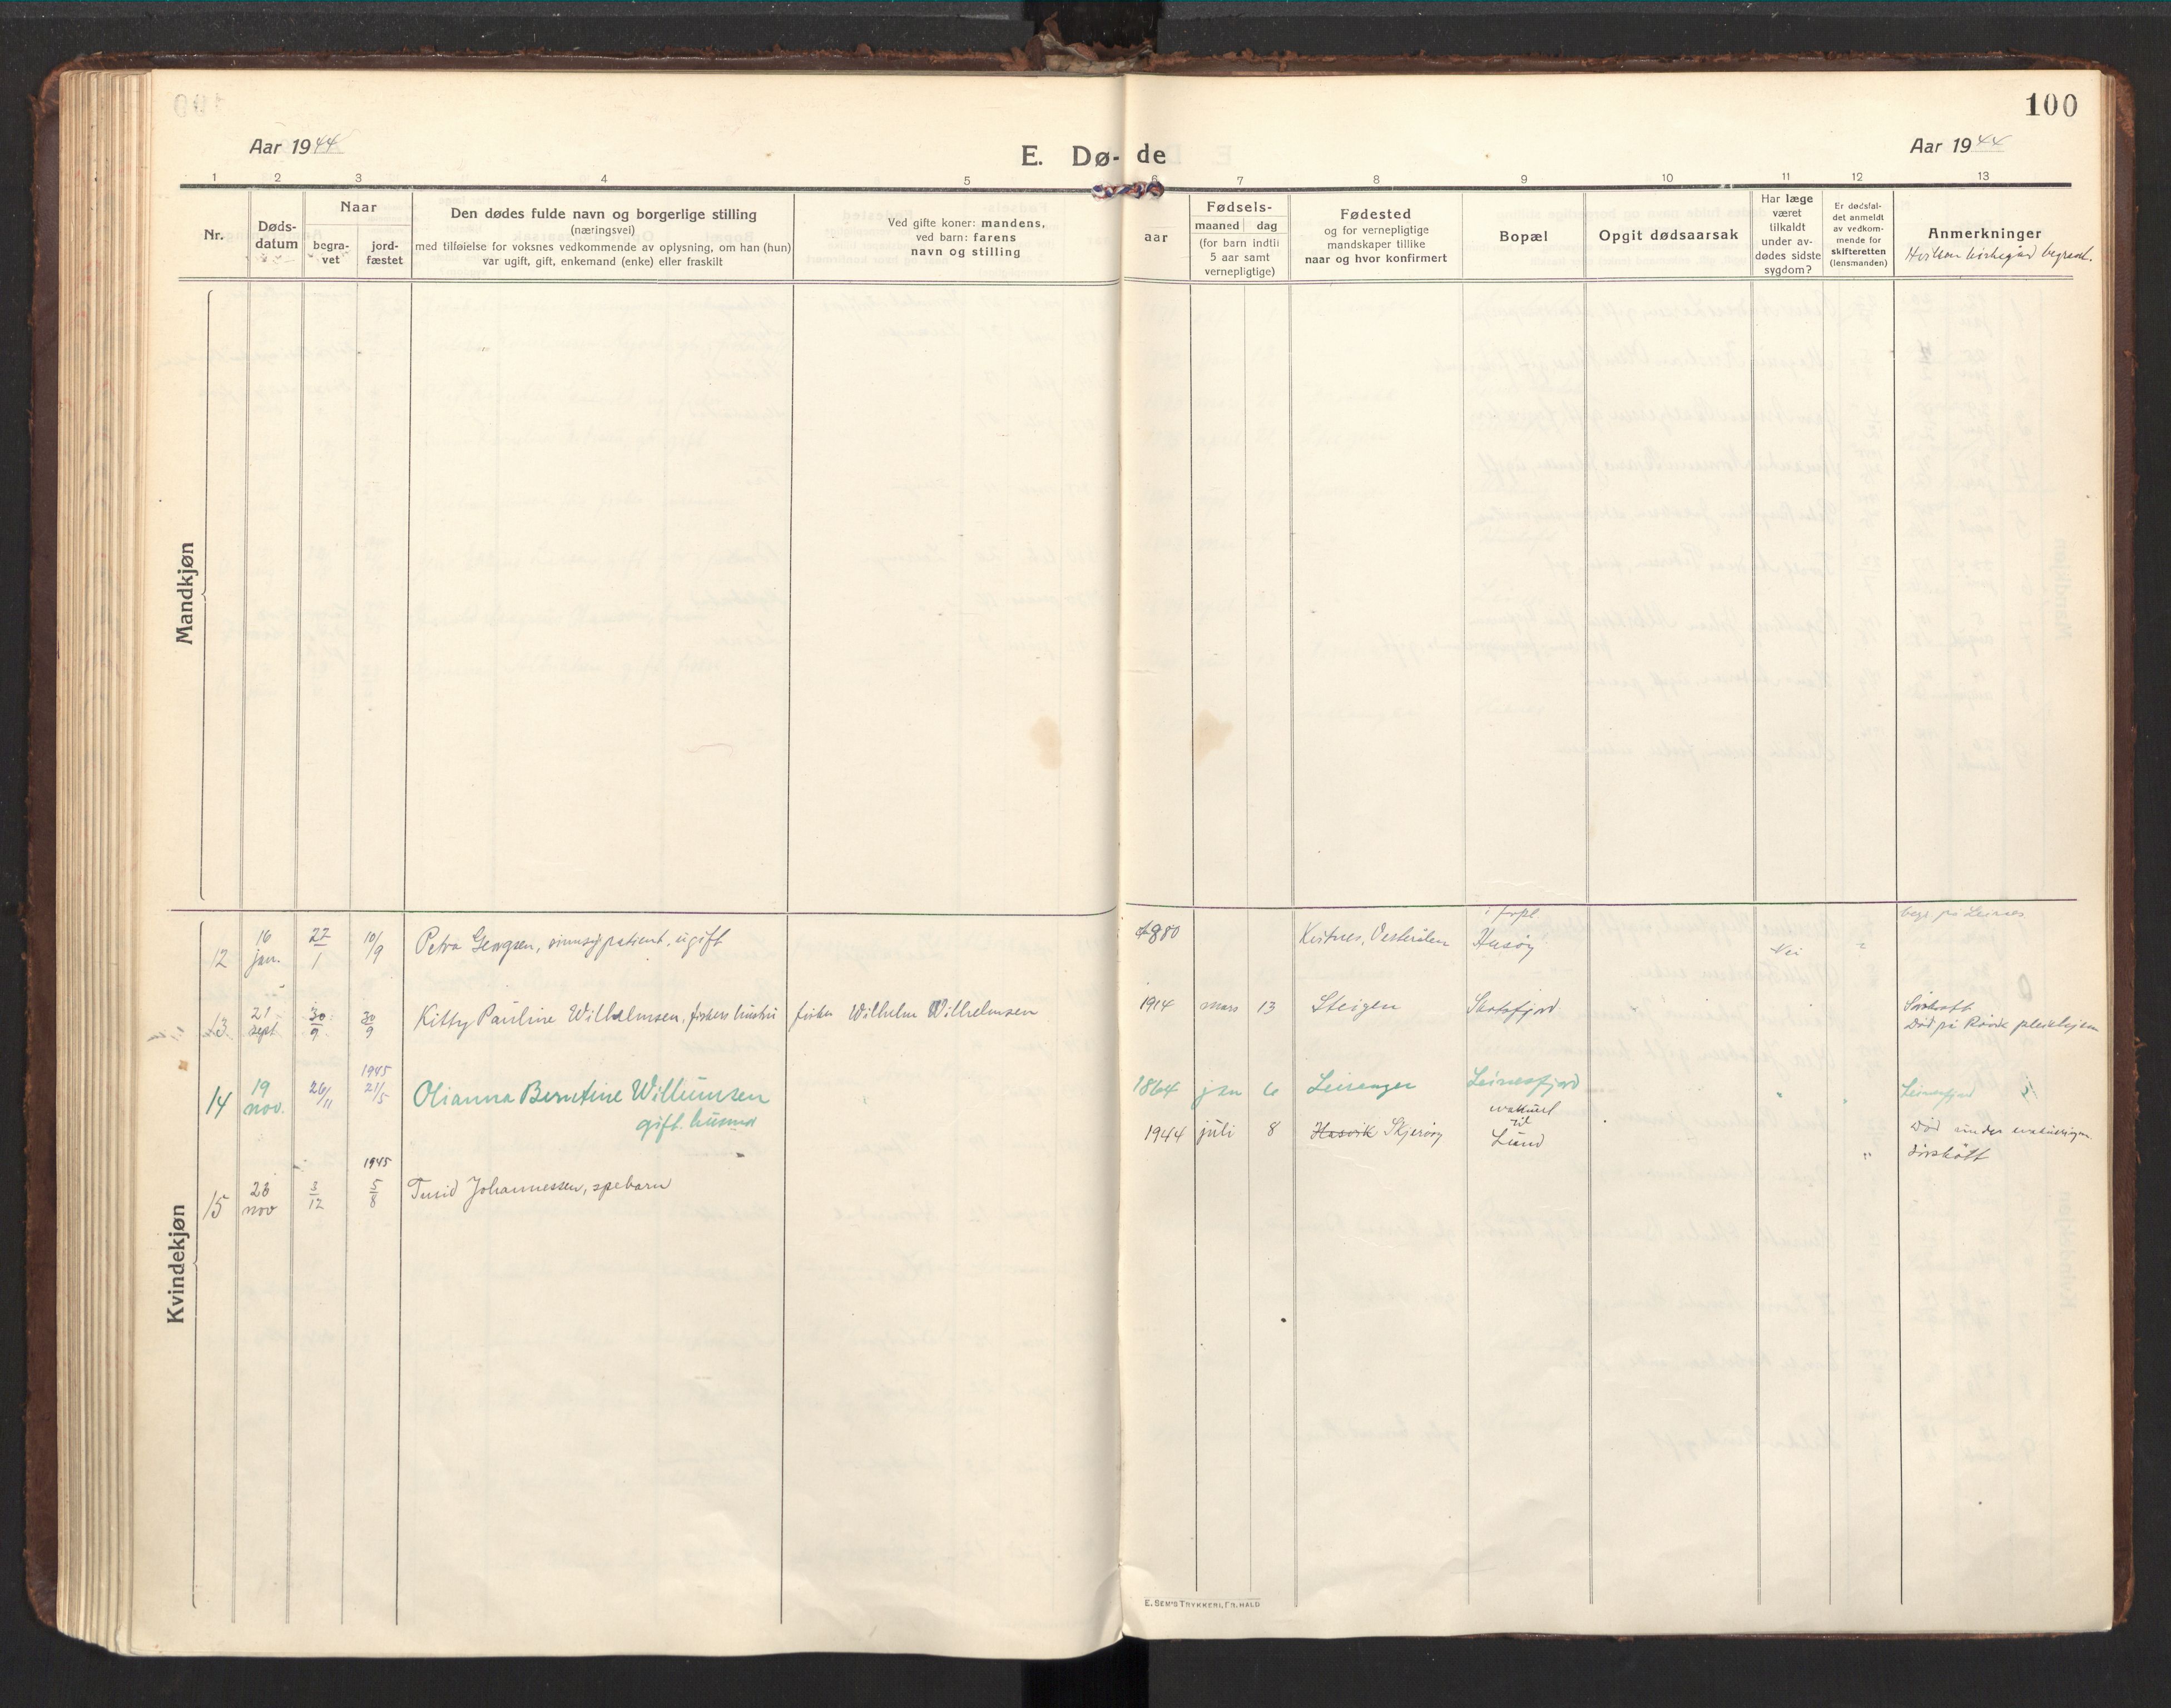 100
Aar 1944
E. Dø- de
Aar 1944
1 2 3 4 5 6 7 8 9 10 11 12 13
Nr.
Døds-
datum
Naar
begra-
vet
jord-
fæstet
Den dødes fulde navn og borgerlige stilling
(næringsvei)
med tilføielse for voksnes vedkommende av oplysning, om han (hun)
var ugift, gift, enkemand (enke) eller fraskilt
Ved gifte koner: mandens,
ved barn: farens
navn og stilling
aar
Fødsels-
maaned dag
(for barn indtil
5 aar samt
vernepligtige)
Fødested
og for vernepligtige
mandskaper tillike
naar og hvor konfirmert
Bopæl
Opgit dødsaarsak
Har læge
været
tilkaldt
under av-
dødes sidste
sygdom?
Er dødsfal-
det anmeldt
av vedkom-
mende for
skifteretten
(lensmanden)
Anmerkninger
kirkegård begravet.
Mandkjøn
Kvindekjøn
12 16 jan. 22/1 10/9 Petra sinnsykpatient, ugift 1880 Vesterålen i forpl. Husøy Nei
begr. på Leines
13 21 sept 30/9 30/9 Kitty Pauline Wilhelmsen, fiskers hustru fisker Wilhelm Wilhelmsen 1914 mars 13 Steigen Skotsfjord
Død på Røsvik pleiehjem
14 19 nov. 26/11 1945 21/5 Olianna Berntine Willumsen 1864 jan 6 Leiranger Leinesfjord Leinesfjord
gift. husmor
15 23 nov 3/12 1945 5/8 Turid Johannessen, spebarn 1944 juli 8 Hasvik Skjerøy evakuert til Lund " Død under evakueringen
E. SEM'S TRYKKERI, FR.HALD